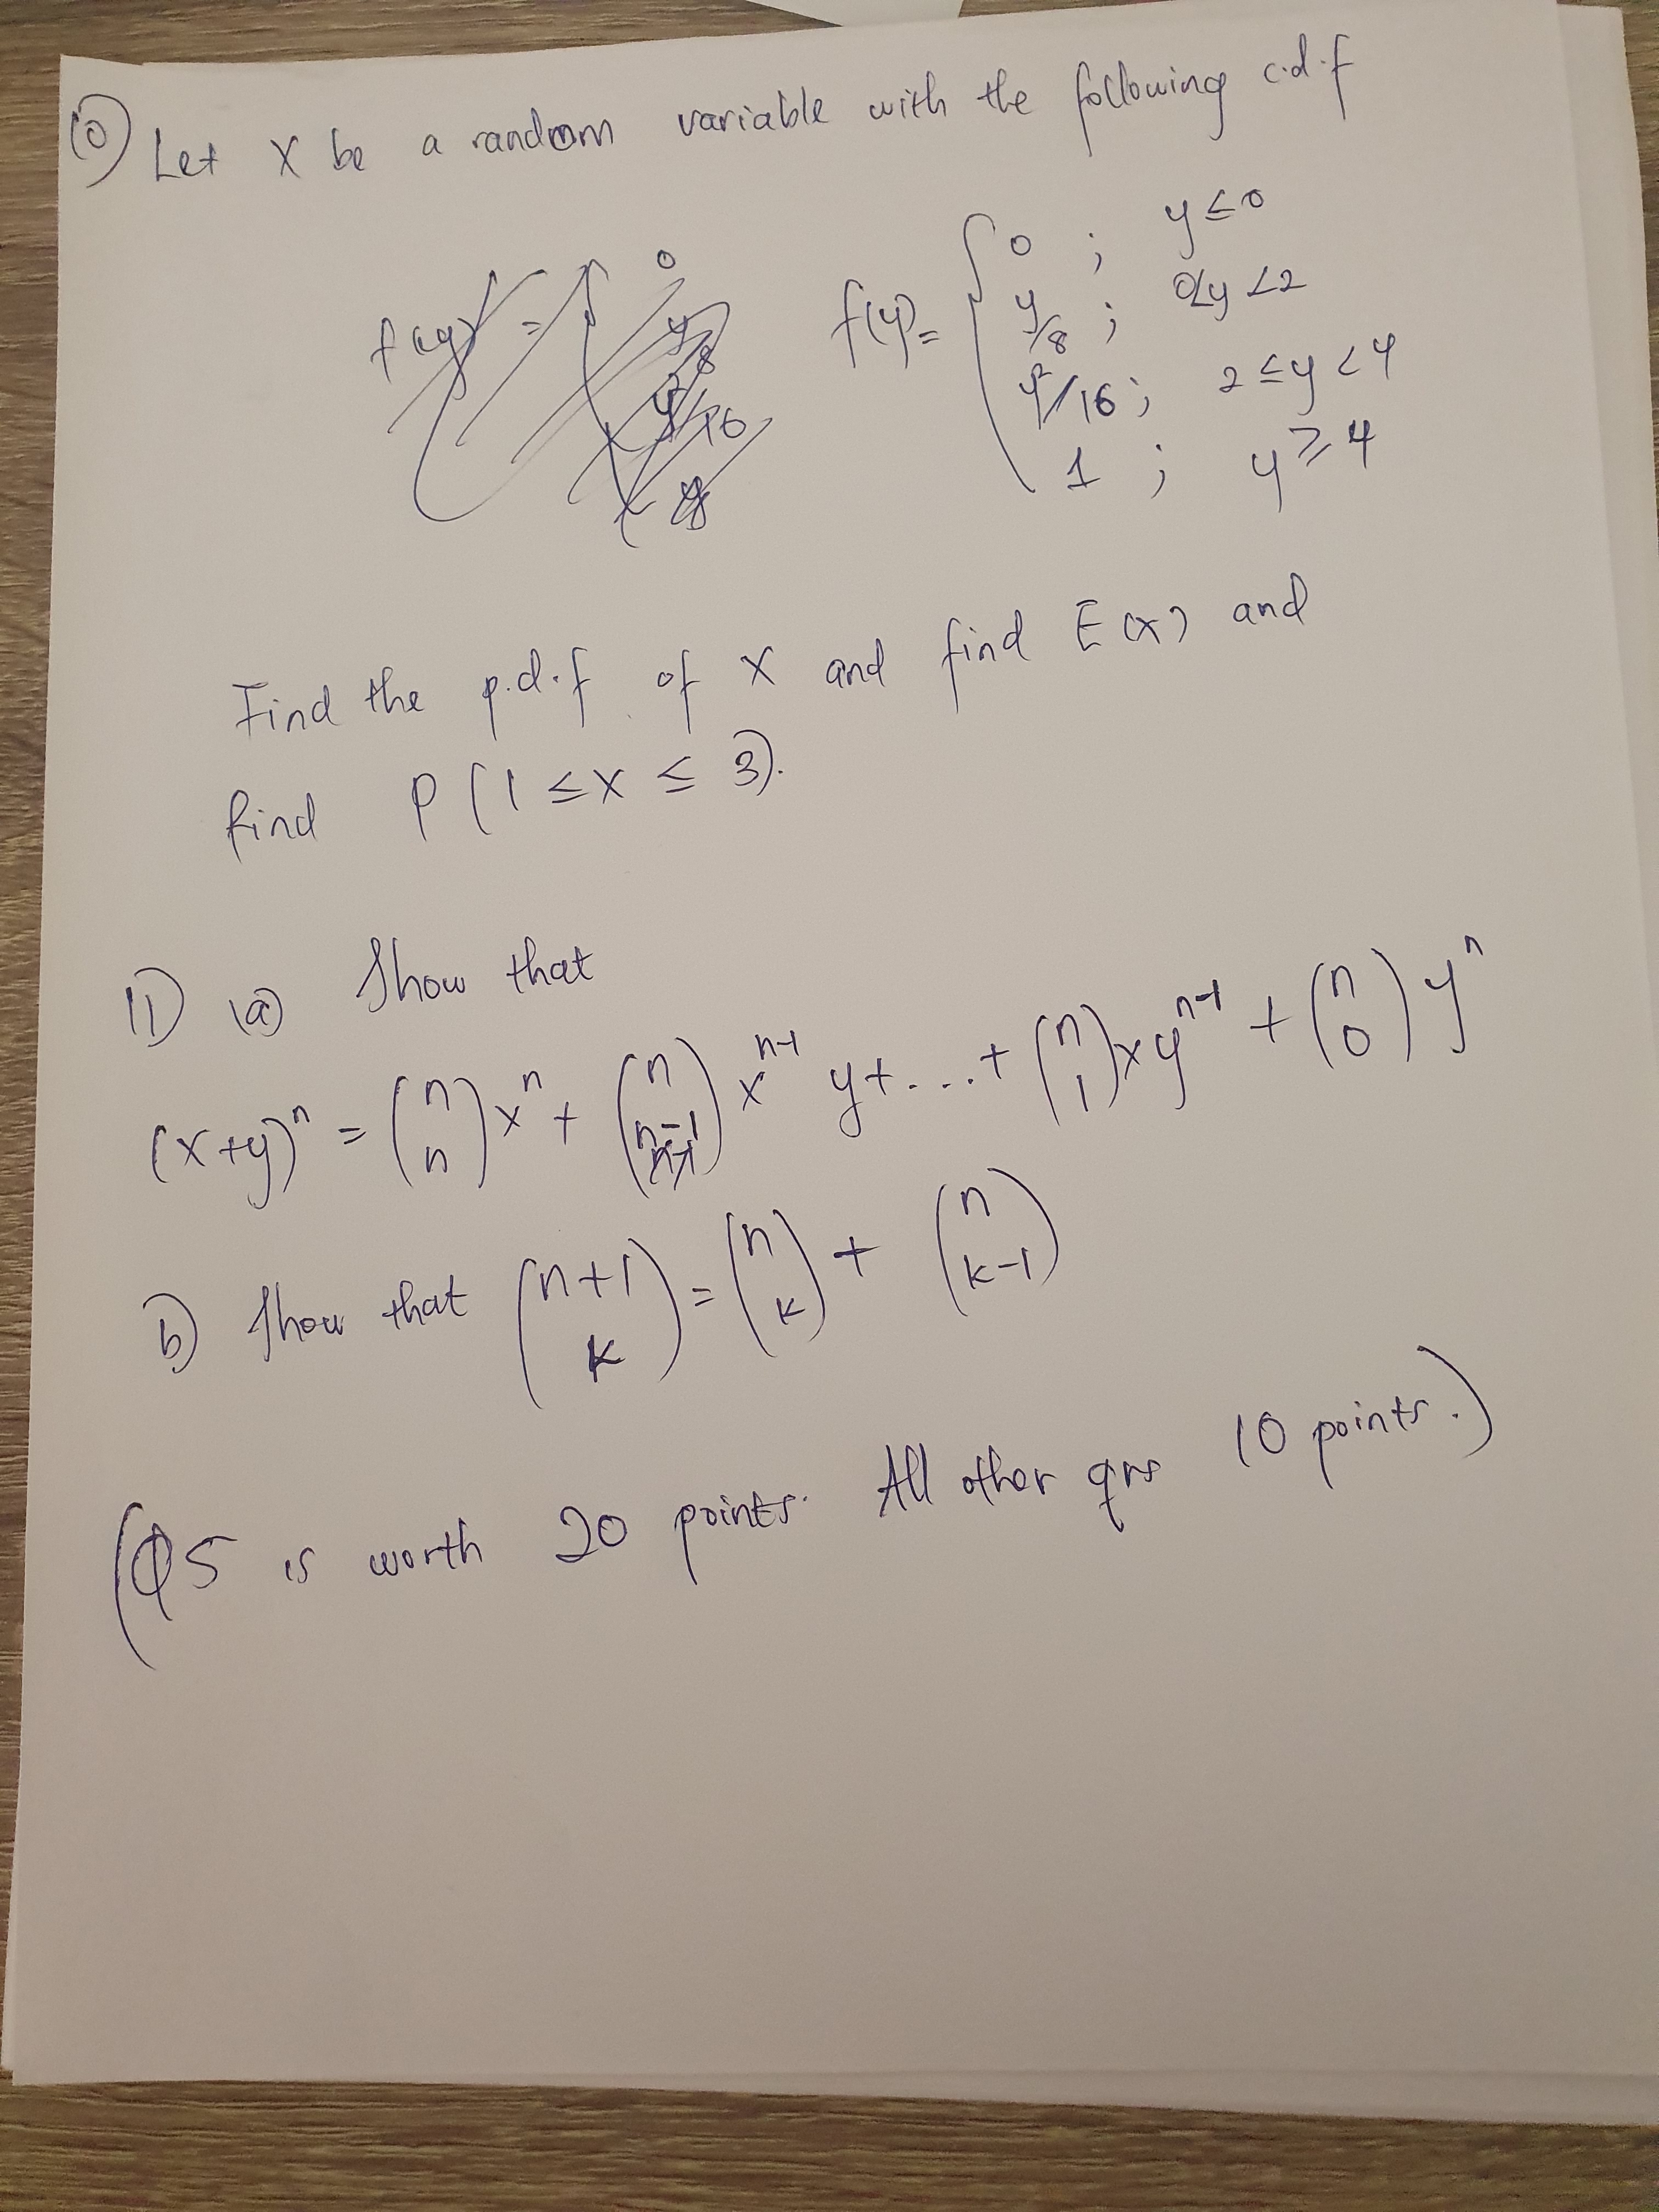 (10) Let X be a random variable with the following c.d.f
f(y) = { 0 ; y ≤ 0
y/8 ; 0<y<2
y²/16 ; 2 ≤ y < 4
1 ; y ≥ 4
Find the p.d.f of X and find E(X) and
find P(1 ≤ X ≤ 3).
11) (a) Show that
(x+y)ⁿ = (n n)xⁿ + (n n-1)xⁿ⁻¹y + .... + (n 1)xyⁿ⁻¹ + (n 0)yⁿ
b) Show that (n+1 k) = (n k) + (n k-1)
(Q5 is worth 20 points. All other qns 10 points.)